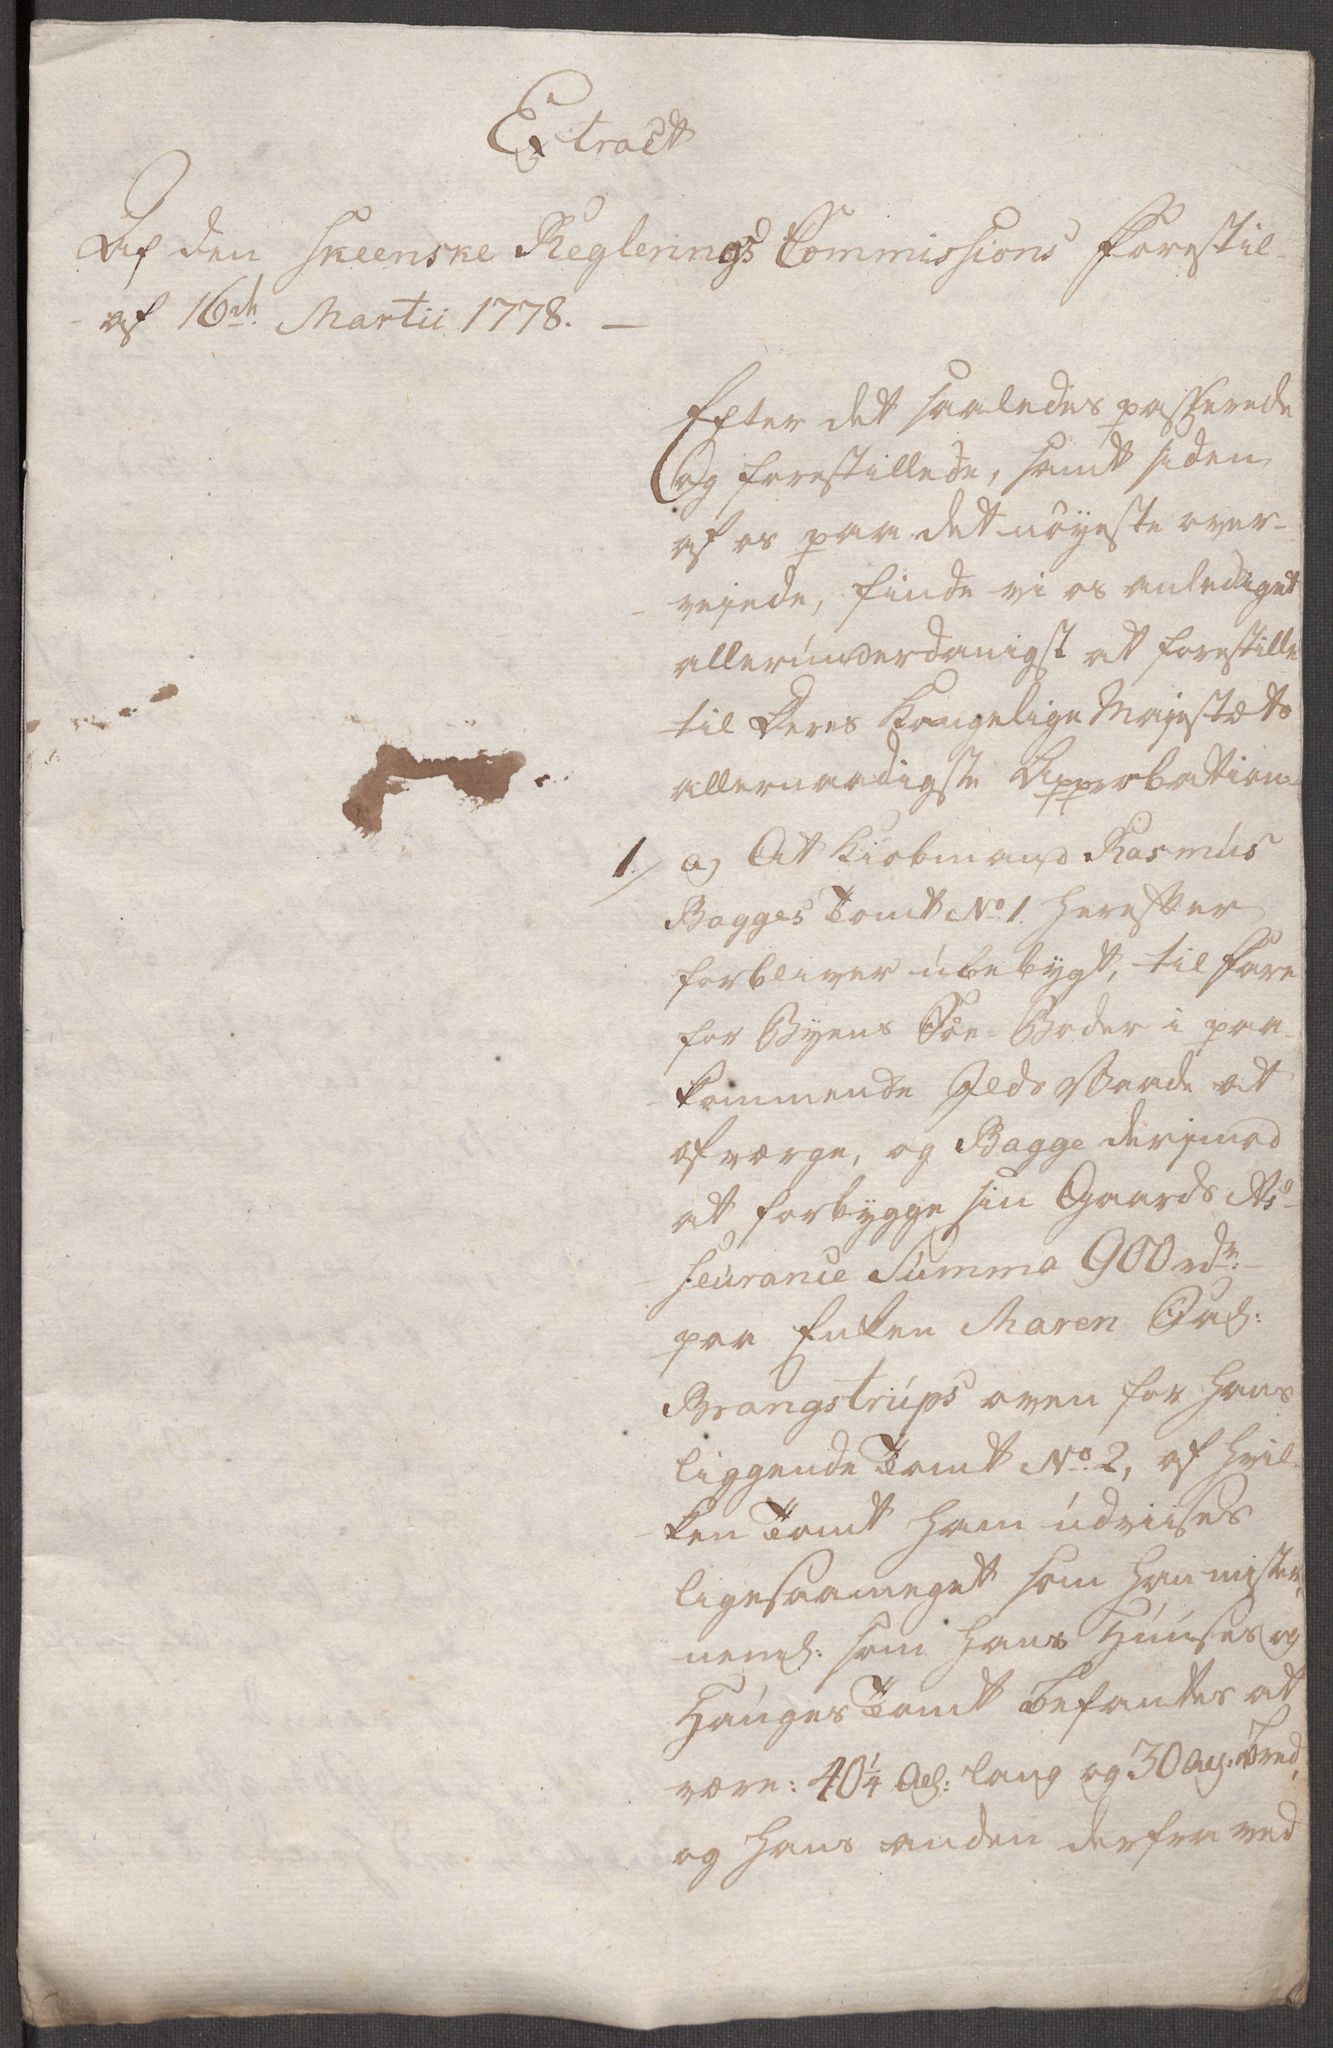 Extract
Af den Skeenske Reglerings Commissions Forestil-
af 16de Martii 1778. —
Efter det saaledes passerede
og forestillede, samt siden
af os paa det nöyeste over-
veyede, finde vi os anlediget
allerunderdanigst at forestille
til Deres Kongelige Majestæts
allernaadigste Approbation.
1./ a) At Kiöbmand Rasmus
Bagges Tomt No 1. herefter
forbliver ubebygt, til Fare
for Byens Söe-Boder i paa-
kommende Ilds Vaade at
afværge, og Bagge derimod
at forbygge sin Gaards As-
seurance Summa 900 rdr.
paa Enken Maren Sal:
Brangstrups oven for hans
liggende Tomt No. 2, af hvil-
ken Tomt ham udviises
ligesaameget som han mister,
neml: som hans Huuses og
Hauges Tomt befantes at
være: 40 1/4 Al: lang og 30 Al: bred,
og hans anden derfra ved